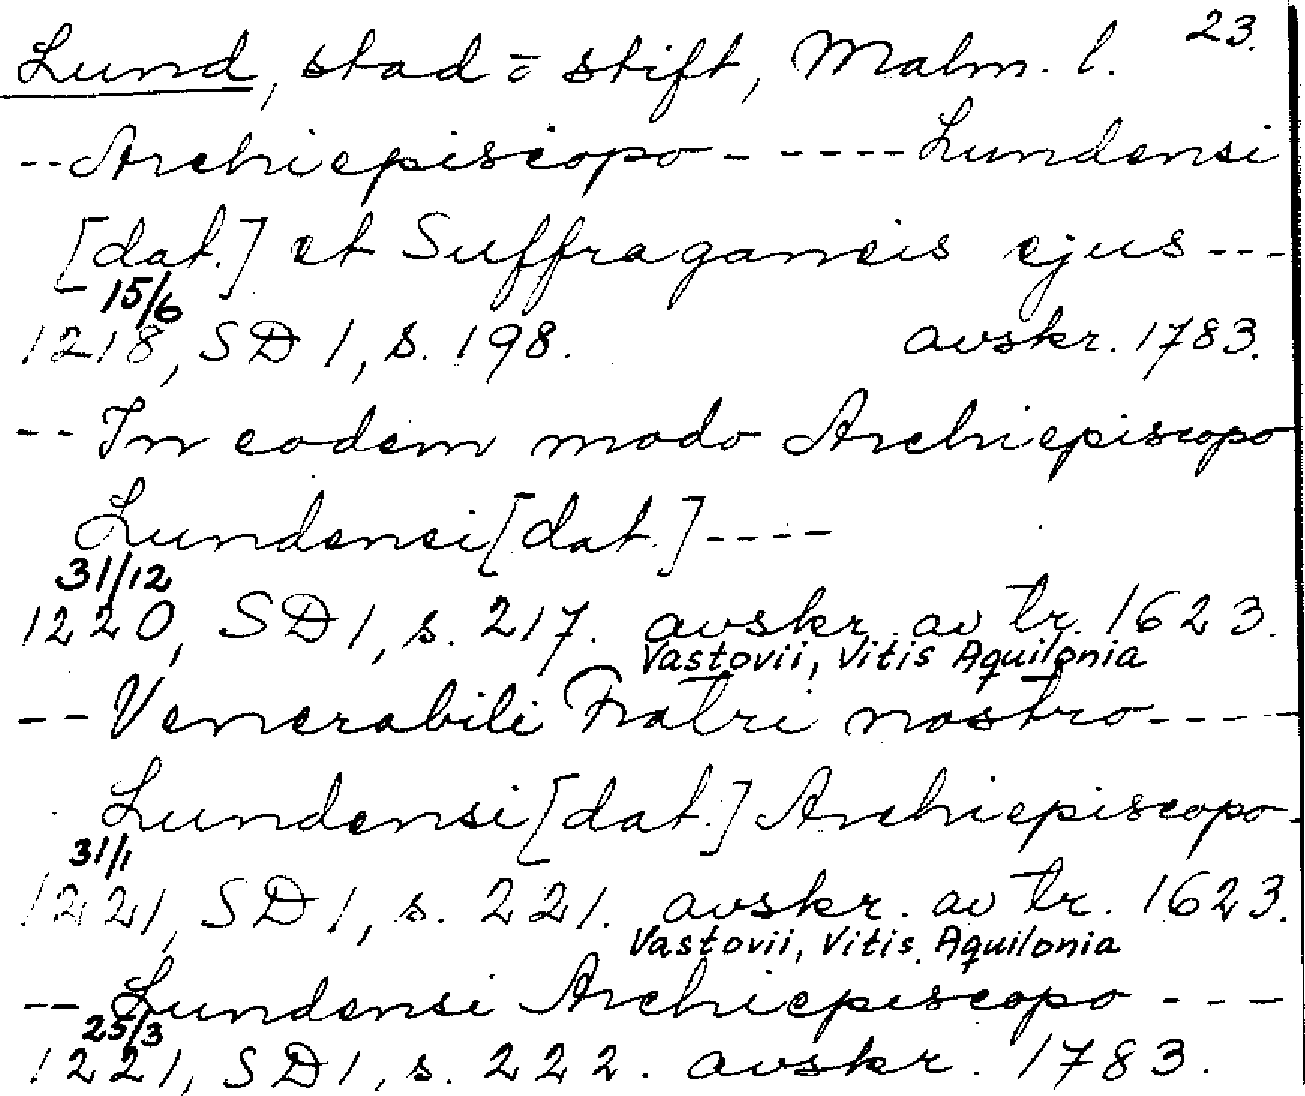 23.
Lund, stad o stift, Malm. l.
-- Archiepiscopo - ---- Lundensi
[dat.] et Suffraganeis ejus ---
15/6
1218, SD 1, s. 198. avskr. 1783.
-- In eodem modo Archiepiscopo
Lundensi [dat.] ----
31/12
1220, SD 1, s. 217. avskr. av tr. 1623.
Vastovii, Vitis Aquilonia
-- Venerabili Fratri nostro -----
Lundensi [dat.] Archiepiscopo -
31/1
1221, SD 1, s. 221. avskr. av tr. 1623.
Vastovii, Vitis Aquilonia
-- Lundensi Archiepiscopo ---
25/3
1221, SD 1, s. 222. avskr. 1783.